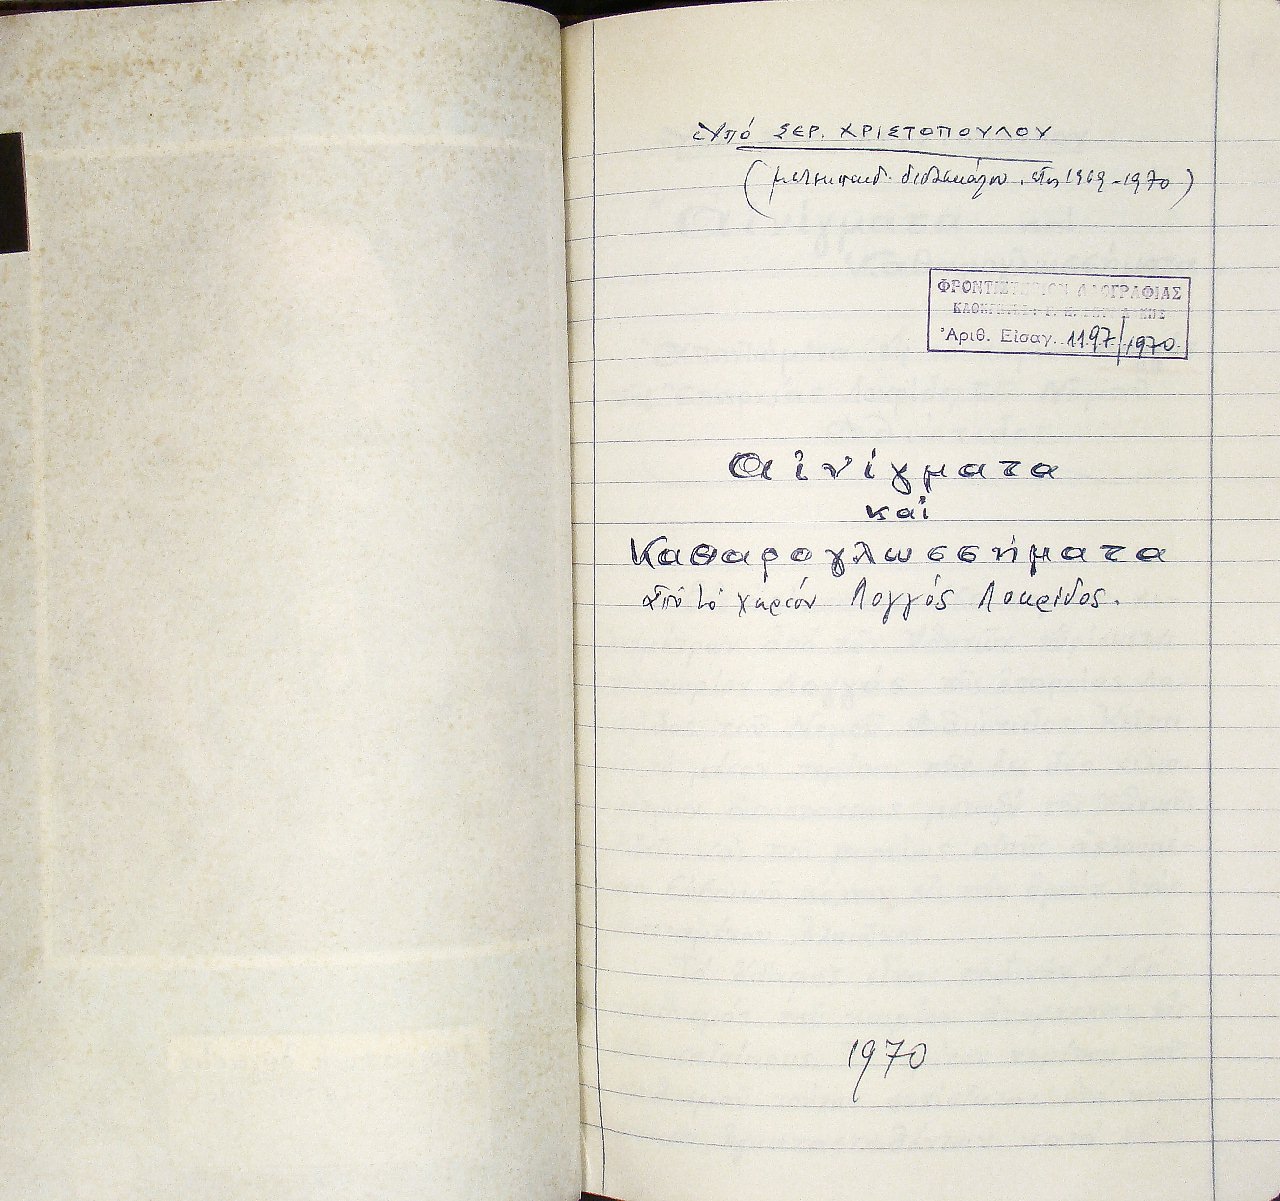 Ὑπό ΣΕΡ. ΧΡΙΣΤΟΠΟΥΛΟΥ
(μετεκπαιδ. διδασκάλου. έτος 1969-1970)
ΦΡΟΝΤΙΣΤΗΡΙΟΝ ΛΑΟΓΡΑΦΙΑΣ
ΚΑΘΗΓΗΤΗΣ:
Ἀριθ. Εἰσαγ. 1197/1970
Αἰνίγματα
καί
Καθαρογλωσσήματα
ἀπό τό χωρίόν Λογγός Λοκρίδος.
1970